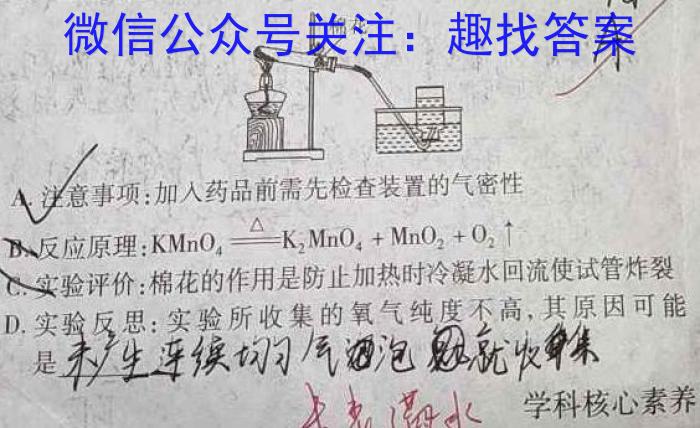 微信公众号关注：趣找答案
棉花
A. 注意事项:加入药品前需先检查装置的气密性
B. 反应原理:KMnO₄ =△= K₂MnO₄ + MnO₂ + O₂↑
C. 实验评价:棉花的作用是防止加热时冷凝水回流使试管炸裂
D. 实验反思:实验所收集的氧气纯度不高,其原因可能
是 未产生连续均匀气泡就收集
满水
学科核心素养